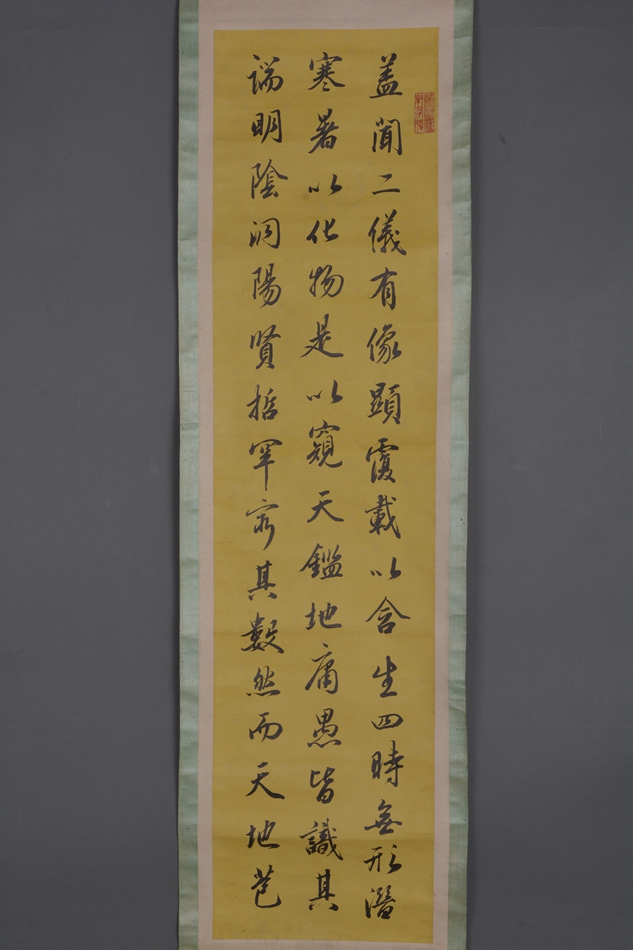 盖聞二儀有像顯覆載以含生四時無形潛
寒暑以化物是以窺天鑑地庸愚皆識其
端明陰洞陽賢哲罕窮其數然而天地苞